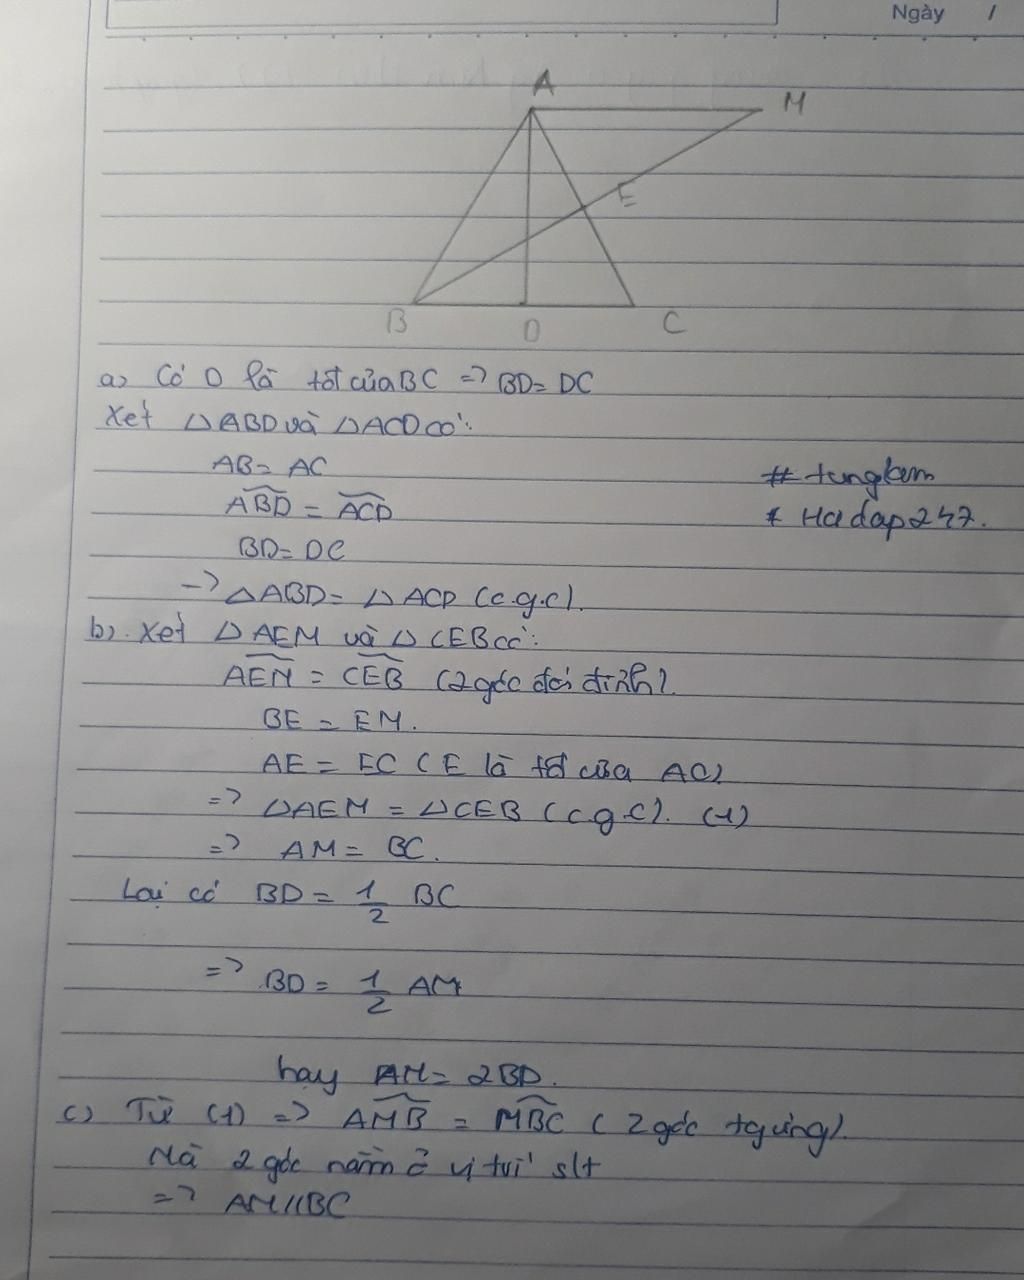 Ngày /
A
M
E
B
D
C
a) Có D là tđ của BC => BD = DC
Xét △ABD và △ACD có:
AB = AC
# tungkem
ABD = ACD
* Hoidap247.
BD = DC
-> △ABD = △ACD (c.g.c).
b). Xét △AEM và △CEB có:
AEM = CEB (2 góc đối đỉnh).
BE = EM.
AE = EC (E là tđ của AC)
=> △AEM = △CEB (c.g.c). (1)
=> AM = BC.
Lại có BD = 1/2 BC
=> BD = 1/2 AM
hay AM = 2BD.
c) Từ (1) => AMB = MBC (2 góc tg ứng).
Mà 2 góc nằm ở vị trí slt
=> AM//BC